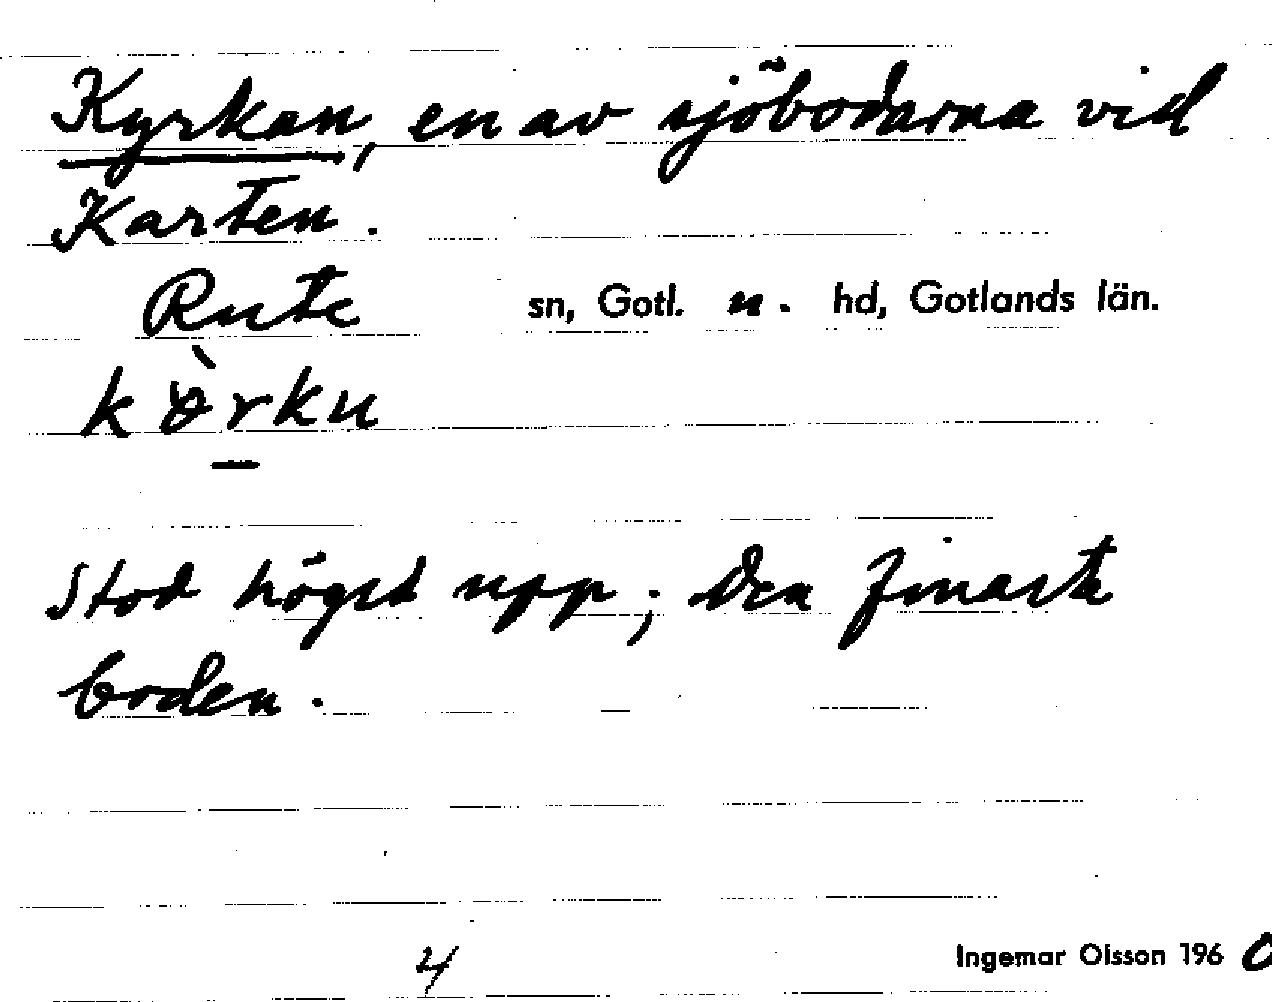 Kyrkan, en av sjöbodarna vid
Karten.
Rute sn, Gotl. n. hd, Gotlands län.
kòrku
Stod högst upp; den finaste
boden.
4
Ingemar Olsson 1960